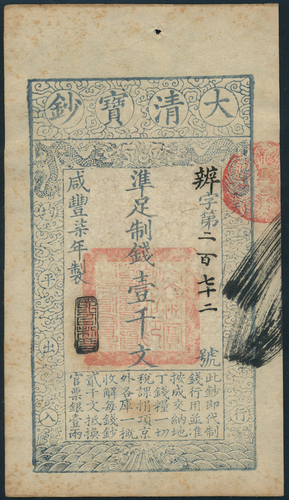 大清寶鈔
辨字第二百七十二號
準足制錢壹千文
咸豐柒年製
此鈔即代制
錢行用並準
按成交納地
丁錢糧一切
稅課捐項京
外各庫一概
收解每錢鈔
貳千文抵換
官票銀壹兩
平
出
入
行